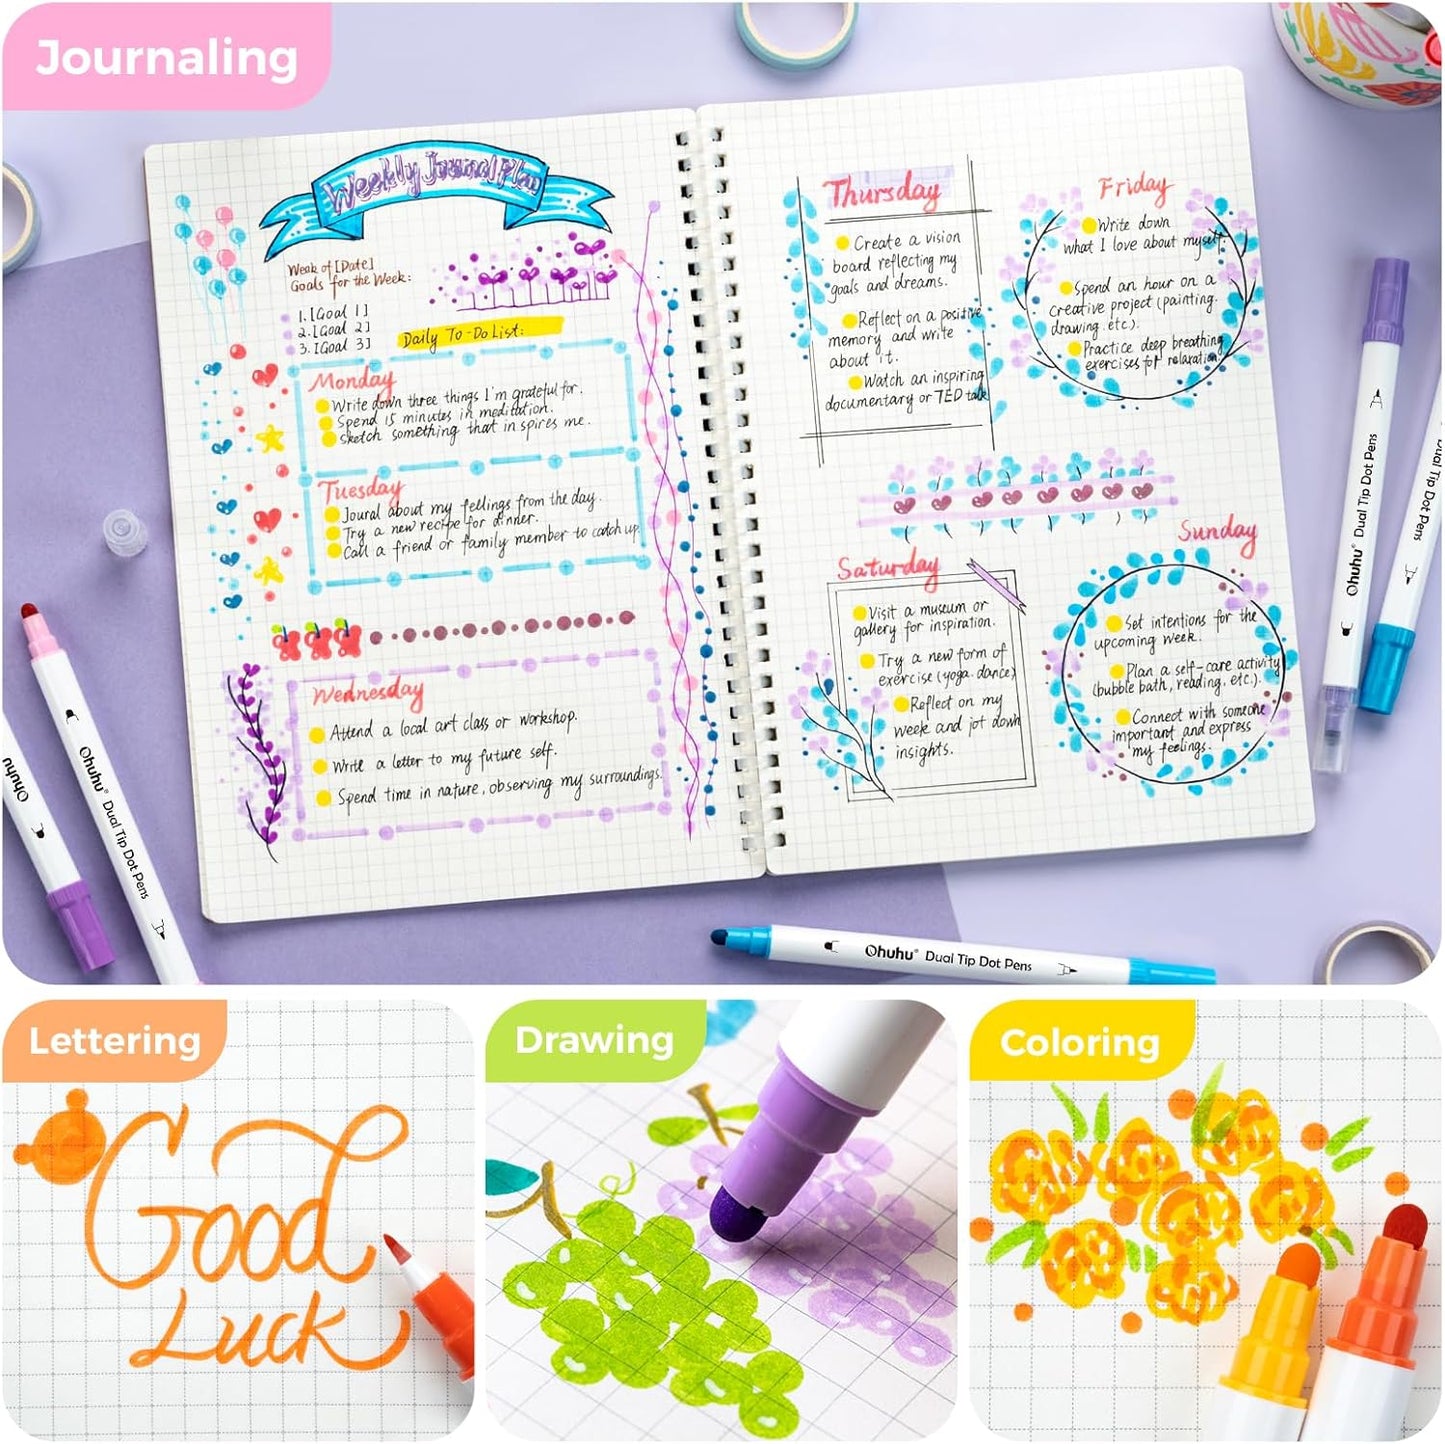 Journaling
Weekly Journal Plan
Week of [Date]
Goals for the Week:
1. [Goal 1]
2. [Goal 2]
3. [Goal 3]
Daily To-Do List:
Monday
Write down three things I'm grateful for.
Spend 15 minutes in meditation.
Sketch something that inspires me.
Tuesday
Joural about my feelings from the day.
Try a new recipe for dinner.
Call a friend or family member to catch up.
Wednesday
Attend a local art class or workshop.
Write a letter to my future self.
Spend time in nature, observing my surroundings.
Thursday
Create a vision
board reflecting my
goals and dreams.
Reflect on a positive
memory and write
about it.
Watch an inspiring
documentary or TED talk
Friday
Write down
what I love about myself.
Spend an hour on a
creative project (painting.
drawing. etc.).
Practice deep breathing
exercises for relaxation.
Saturday
Visit a museum or
gallery for inspiration.
Try a new form of
exercise (yoga. dance)
Reflect on my
week and jot down
insights.
Sunday
Set intentions for the
upcoming week.
Plan a self-care activity
(bubble bath, reading. etc.).
Connect with someone
important and express
my feelings.
Ohuhu® Dual Tip Dot Pens
Dual Tip Dot Pens
Ohuhu
Ohuhu® Dual Tip Dot Pens
Ohuhu® Dual Tip Dot Pens
Lettering
Good
Luck
Drawing
Coloring